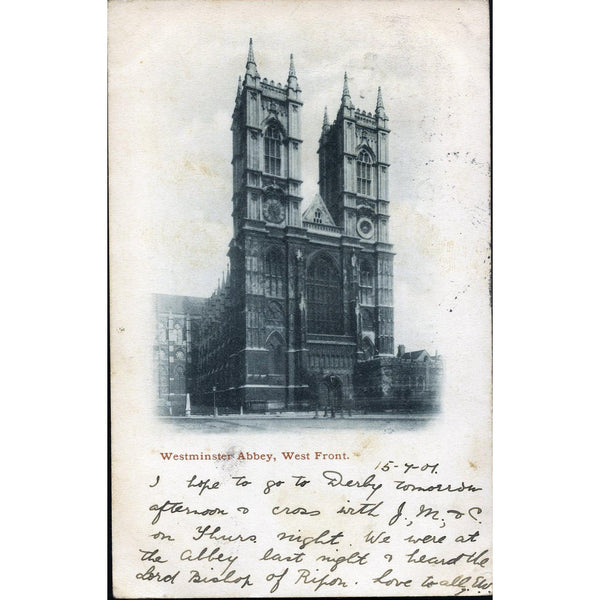 Westminster Abbey, West Front.
15-7-01.
I hope to go to Derby tomorrow
afternoon & cross with J, M, & C.
on Thurs night. We were at
the Abbey last night & heard the
Lord Bishop of Ripon. Love to all,